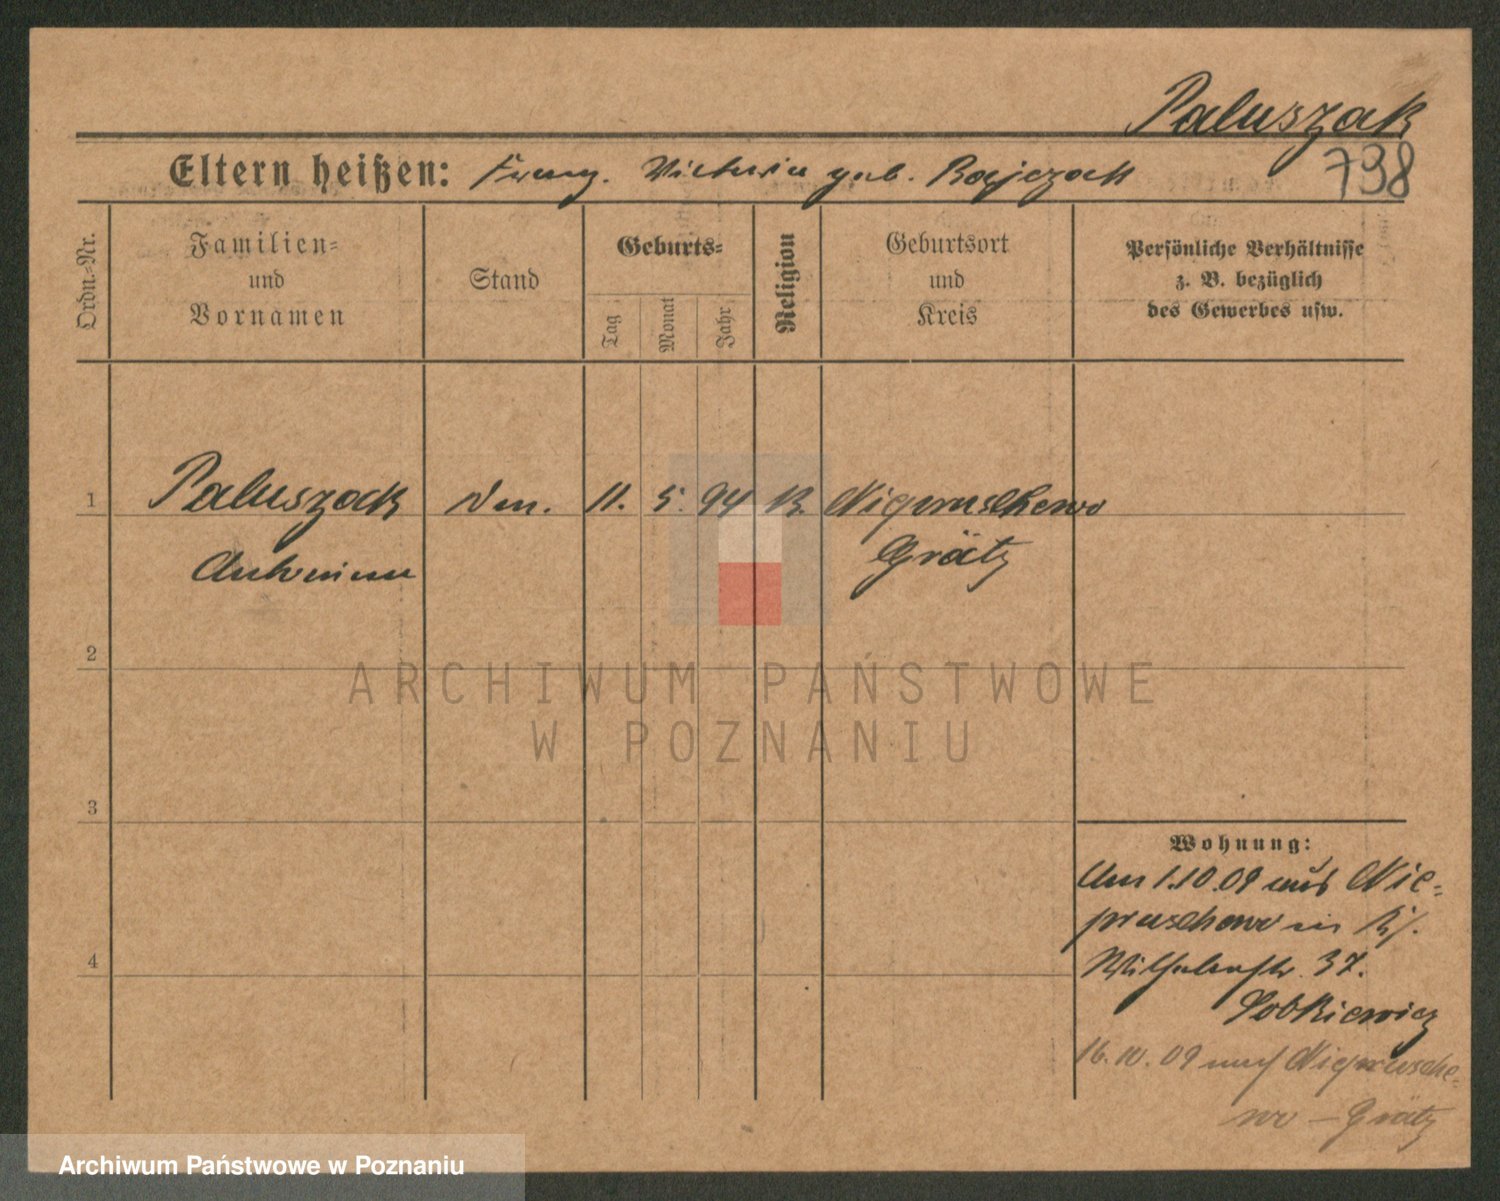 Paluszak
798
Eltern heißen: Franz. Victoria geb. Bajczak
Ordn.=Nr.
Familien=
und
Vornamen
Stand
Geburts=
Tag
Monat
Jahr
Religion
Geburtsort
und
Kreis
Persönliche Verhältnisse
z. B. bezüglich
des Gewerbes usw.
1 Paluszak 11. 5. 94 K. Niegoruschewo
Grätz
2
ARCHIWUM PAŃSTWOWE
W POZNANIU
3
4
Wohnung:
Am 1.10.09 aus Nie=
pruschewo in
Wilhelmstr. 37.
Sobkiewicz
16.10.09 nach Nieprusche=
wo – Grätz
Archiwum Państwowe w Poznaniu